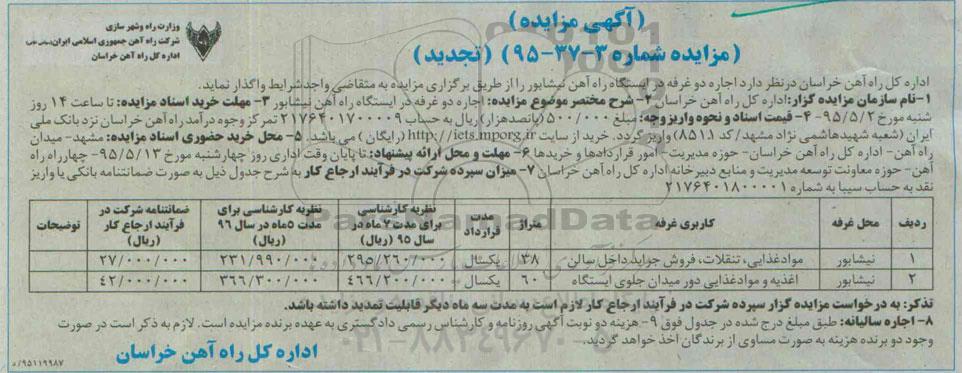 (آگهی مزایده)
(مزایده شماره ۳-۳۷-۹۵) (تجدید)
وزارت راه وشهر سازی
شرکت راه آهن جمهوری اسلامی ایران
اداره کل راه آهن خراسان
اداره کل راه آهن خراسان درنظر دارد اجاره دو غرفه در ایستگاه راه آهن نیشابور را از طریق برگزاری مزایده به متقاضی واجدشرایط واگذار نماید.
۱-نام سازمان مزایده گزار:اداره کل راه آهن خراسان ۲- شرح مختصر موضوع مزایده: اجاره دو غرفه در ایستگاه راه آهن نیشابور ۳- مهلت خرید اسناد مزایده: تا ساعت ۱۴ روز
شنبه مورخ ۹۵/۵/۲- ۴- قیمت اسناد و نحوه واریز وجه: مبلغ ۵۰۰/۰۰۰ (پانصدهزار) ریال به حساب ۲۱۷۶۴۰۱۷۰۰۰۰۹ تمرکز وجوه درآمد راه آهن خراسان نزد بانک ملی
ایران (شعبه شهیدهاشمی نژاد مشهد/ کد ۸۵۱۱) واریز گردد. خرید از سایت http://iets.mporg.ir (رایگان) می باشد. ۵- محل خرید حضوری اسناد مزایده: مشهد- میدان
راه آهن- اداره کل راه آهن خراسان- حوزه مدیریت- امور قراردادها و خریدها ۶- مهلت و محل ارائه پیشنهاد: تا پایان وقت اداری روز چهارشنبه مورخ ۹۵/۵/۱۳- چهارراه راه
آهن- حوزه معاونت توسعه مدیریت و منابع دبیرخانه اداره کل راه آهن خراسان ۷- میزان سپرده شرکت در فرآیند ارجاع کار به شرح جدول ذیل به صورت ضمانتنامه بانکی یا واریز
نقد به حساب سیبا به شماره ۲۱۷۶۴۰۱۸۰۰۰۰۱
ردیف محل غرفه کاربری غرفه متراژ مدت قرارداد نظریه کارشناسی برای مدت ۷ ماه در سال ۹۵ (ریال) نظریه کارشناسی برای مدت ۵ماه در سال ۹۶ (ریال) ضمانتنامه شرکت در فرآیند ارجاع کار (ریال) توضیحات
۱ نیشابور موادغذایی، تنقلات، فروش جراید،داخل سالن ۳۸ یکسال ۲۹۵/۲۶۰/۰۰۰ ۲۳۱/۹۹۰/۰۰۰ ۲۷/۰۰۰/۰۰۰
۲ نیشابور اغذیه و موادغذایی دور میدان جلوی ایستگاه ۶۰ یکسال ۴۶۶/۲۰۰/۰۰۰ ۳۶۶/۳۰۰/۰۰۰ ۴۲/۰۰۰/۰۰۰
تذکر: به درخواست مزایده گزار سپرده شرکت در فرآیند ارجاع کار لازم است به مدت سه ماه دیگر قابلیت تمدید داشته باشد.
۸- اجاره سالیانه: طبق مبلغ درج شده در جدول فوق ۹- هزینه دو نوبت آگهی روزنامه و کارشناس رسمی دادگستری به عهده برنده مزایده است. لازم به ذکر است در صورت
وجود دو برنده هزینه به صورت مساوی از برندگان اخذ خواهد گردید.
اداره کل راه آهن خراسان
۹۵۱۱۹۹۸۷/د
ParsNamadData
۰۲۱-۸۸۳۴۹۶۷۰